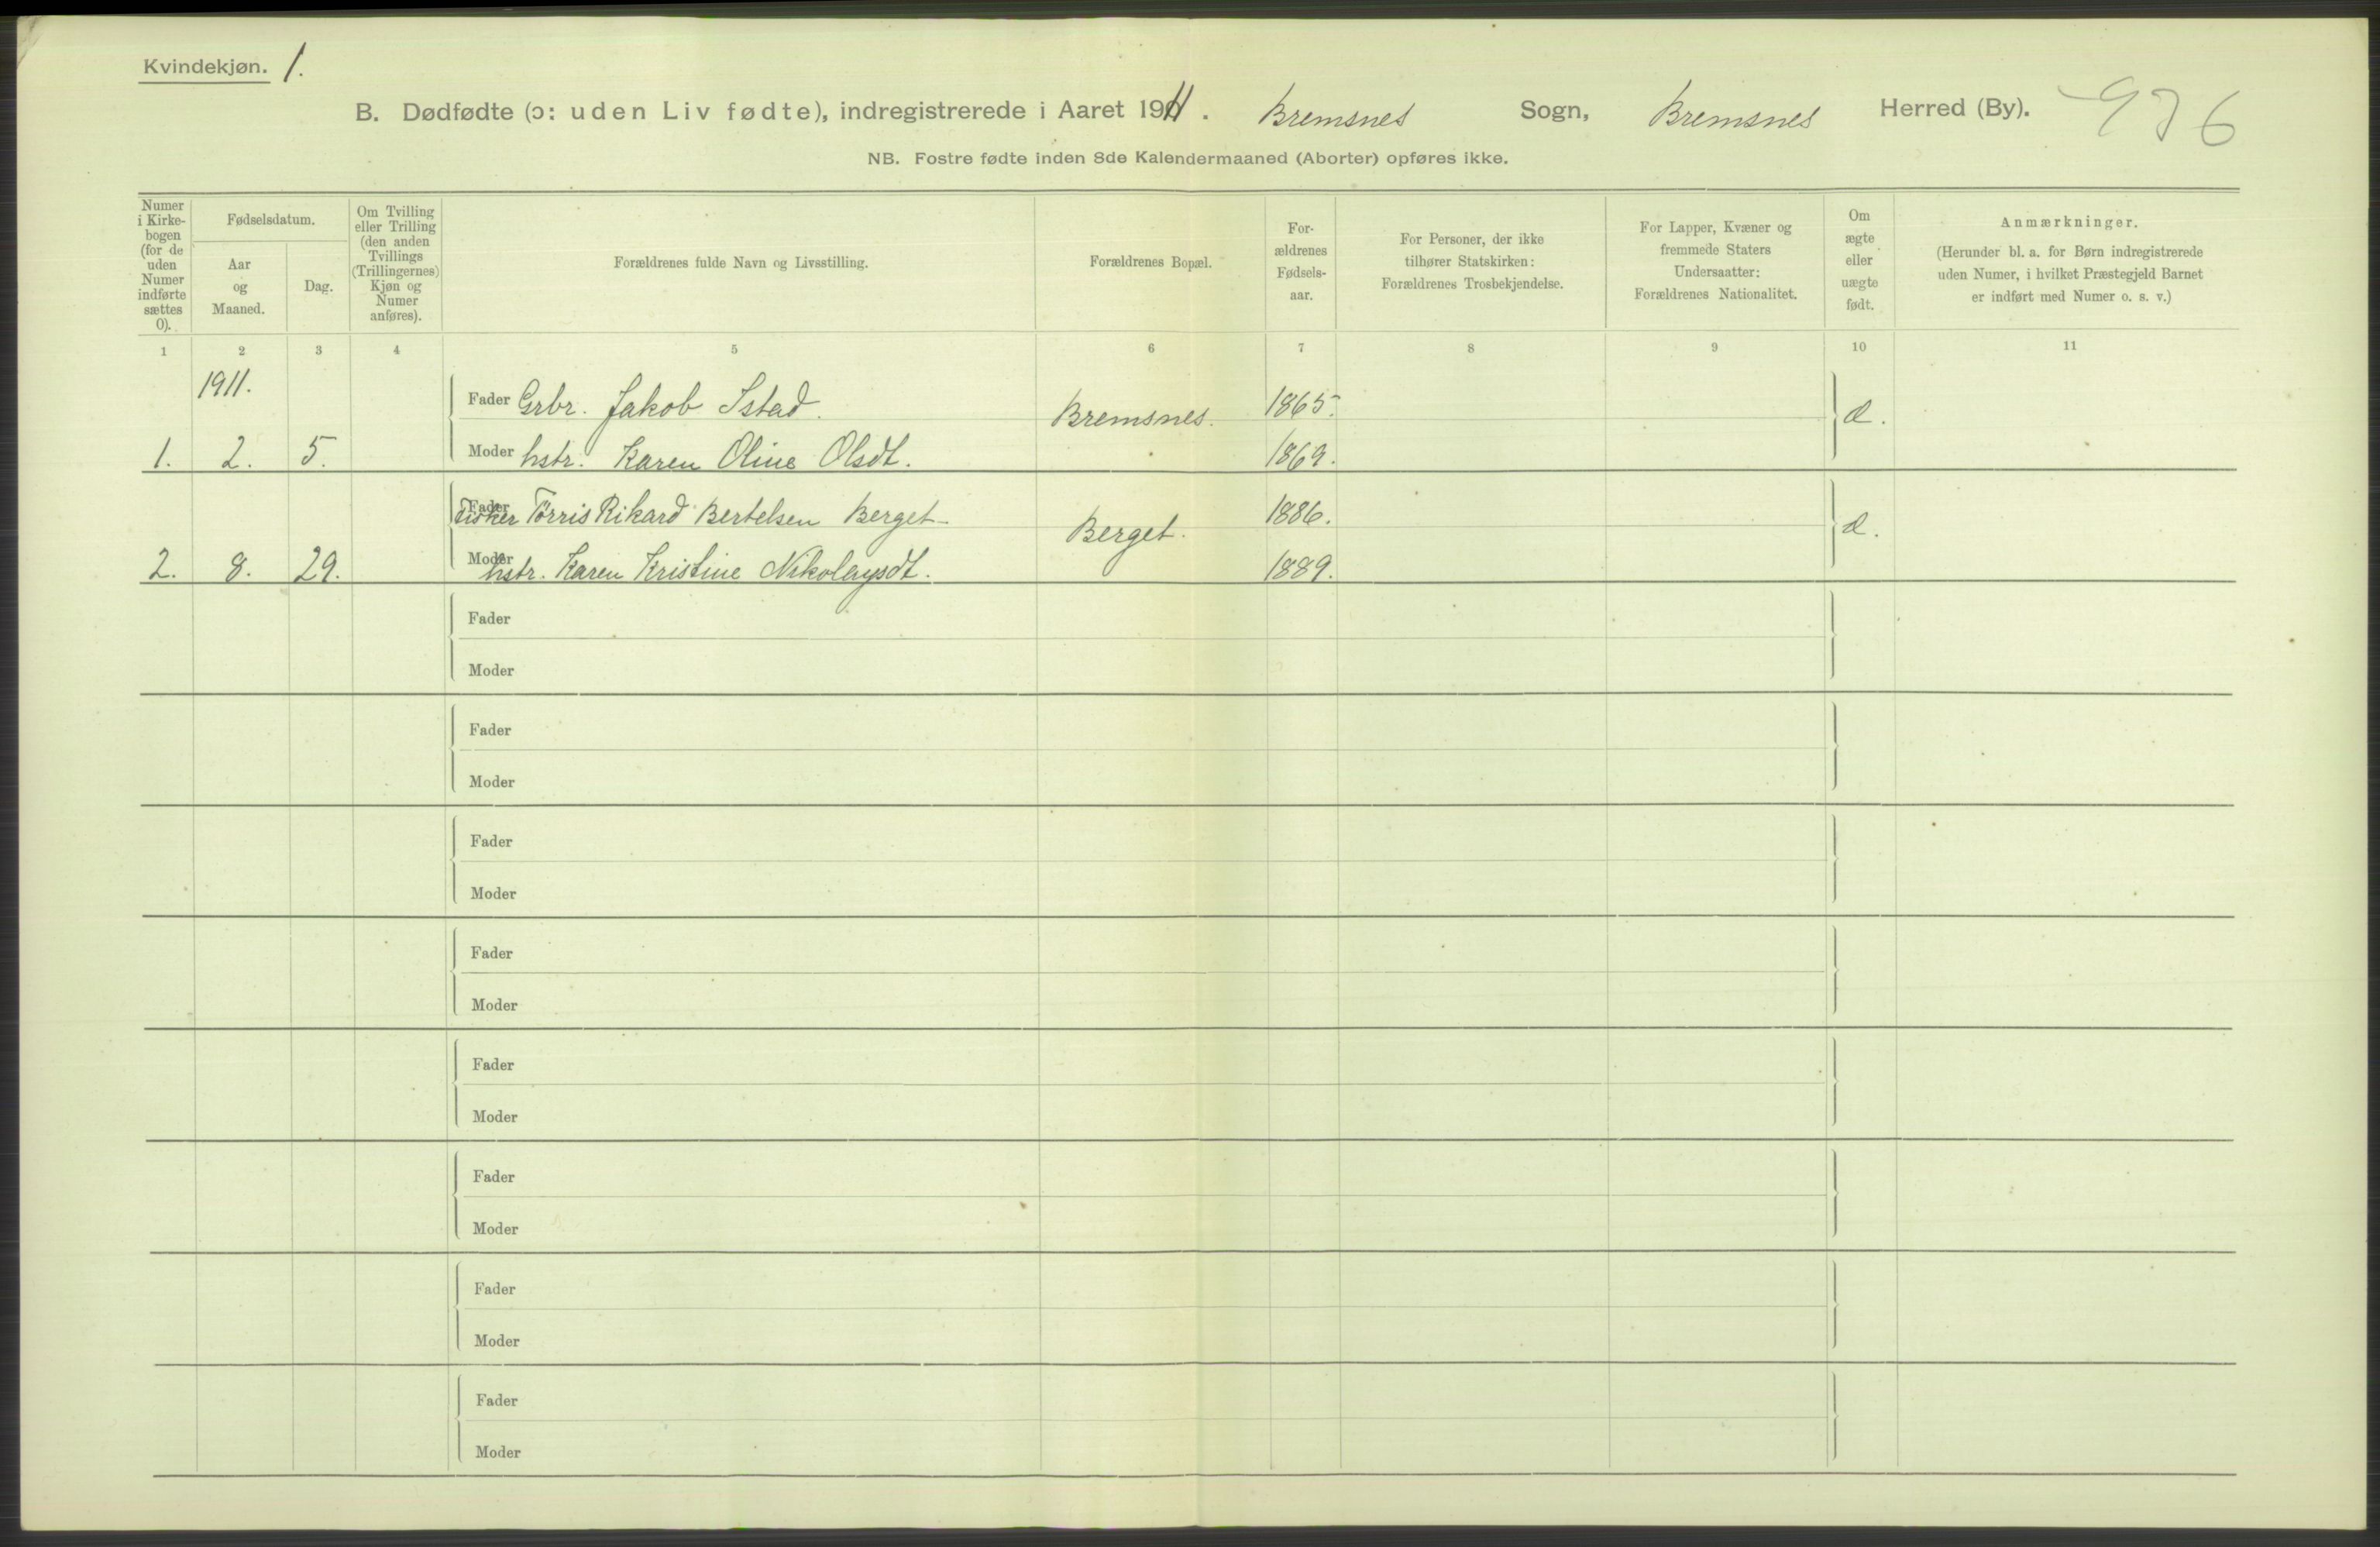 Kvindekjøn. 1.
B. Dødfødte (ɔ: uden Liv fødte), indregistrerede i Aaret 1911. Bremsnes Sogn, Bremsnes Herred (By). 936
NB. Fostre fødte inden 8de Kalendermaaned (Aborter) opføres ikke.
Numer i Kirkebogen (for de uden Numer indførte sættes 0).
Fødselsdatum.
Aar og Maaned.
Dag.
Om Tvilling eller Trilling (den anden Tvillings (Trillingernes) Kjøn og Numer anføres).
Forældrenes fulde Navn og Livsstilling.
Forældrenes Bopæl.
For-
ældrenes
Fødsels-
aar.
For Personer, der ikke
tilhører Statskirken:
Forældrenes Trosbekjendelse.
For Lapper, Kvæner og
fremmede Staters
Undersaatter:
Forældrenes Nationalitet.
Om
ægte
eller
uægte
født.
Anmærkninger.
(Herunder bl. a. for Børn indregistrerede
uden Numer, i hvilket Præstegjeld Barnet
er indført med Numer o. s. v.)
1 2 3 4 5 6 7 8 9 10 11
1911.
Fader Grbr. Jakob Istad. Bremsnes. 1865. æ.
1. 2. 5. Moder hstr. Karen Oline Olsdt. 1869.
Fader Fisker Tørris Rikard Bertelsen Berget Berget. 1886. æ.
2. 8. 29. Moder hstr. Karen Kristine Nikolaysdt. 1889.
Fader
Moder
Fader
Moder
Fader
Moder
Fader
Moder
Fader
Moder
Fader
Moder
Fader
Moder
Fader
Moder